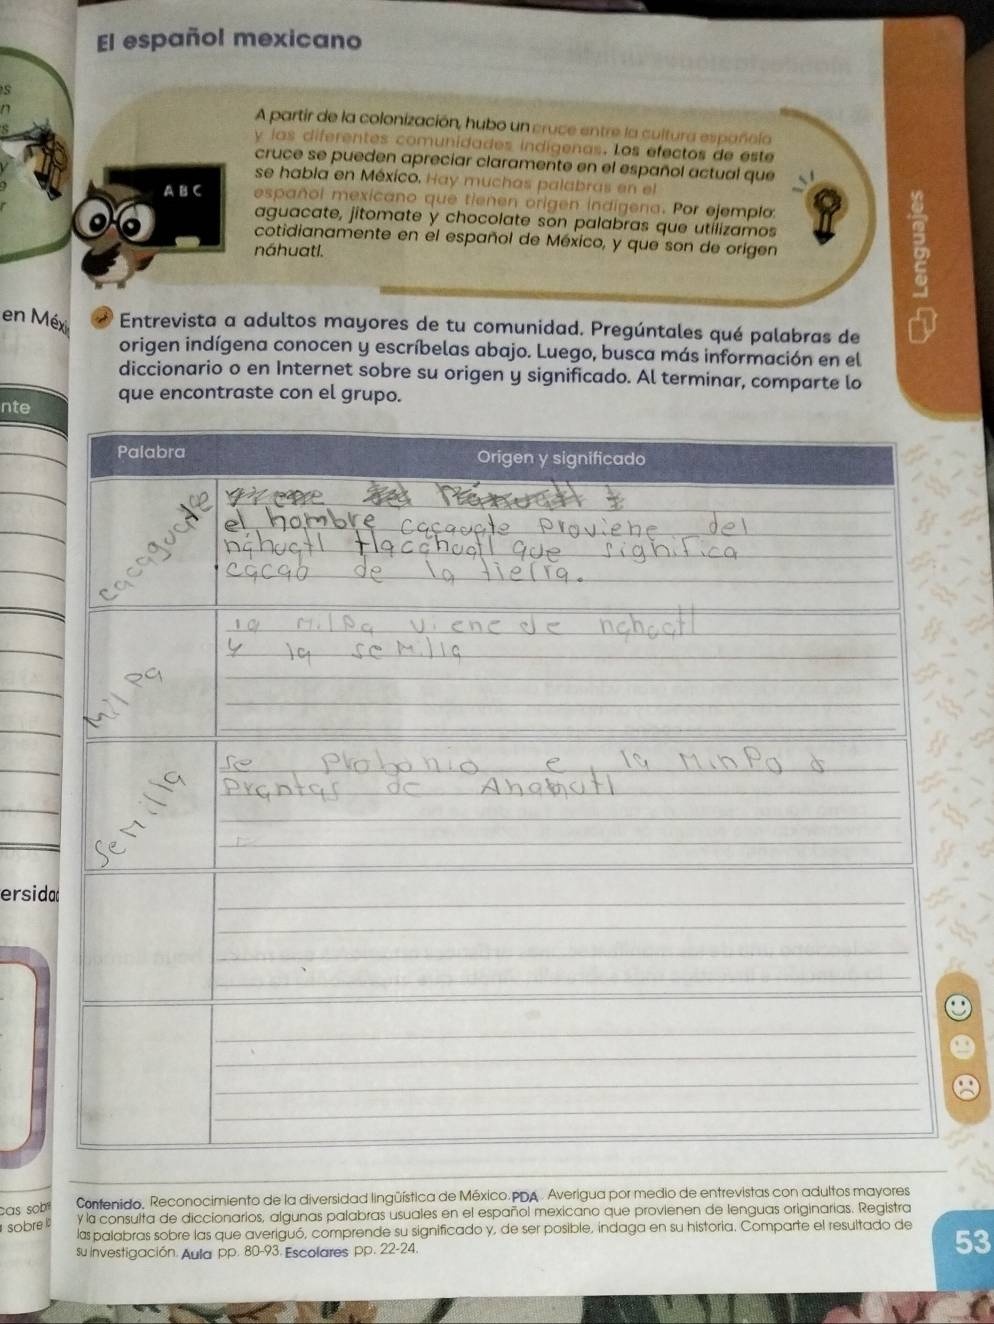 El español mexicano
A partir de la colonización, hubo un cruce entre la cultura española
y las diferentes comunidades indígenas. Los efectos de este
cruce se pueden apreciar claramente en el español actual que
se habla en México. Hay muchas palabras en el
español mexicano que tienen origen indígena. Por ejemplo:
aguacate, jitomate y chocolate son palabras que utilizamos
cotidianamente en el español de México, y que son de origen
náhuatl.
A B C
Lenguajes
en Méxi
Entrevista a adultos mayores de tu comunidad. Pregúntales qué palabras de
origen indígena conocen y escríbelas abajo. Luego, busca más información en el
diccionario o en Internet sobre su origen y significado. Al terminar, comparte lo
que encontraste con el grupo.
nte
Palabra Origen y significado
el hombre cacaguate proviene del
náhuatl tlacahuatl que significa
cacao de la tierra.
la milpa viene de nahuatl
y la semilla
milpa
se e la
de
semilla
ersidad
Contenido. Reconocimiento de la diversidad lingüística de México. PDA. Averigua por medio de entrevistas con adultos mayores
y la consulta de diccionarios, algunas palabras usuales en el español mexicano que provienen de lenguas originarias. Registra
las palabras sobre las que averiguó, comprende su significado y, de ser posible, indaga en su historia. Comparte el resultado de
su investigación. Aula pp. 80-93. Escolares pp. 22-24.
cas sobr
sobre l
53